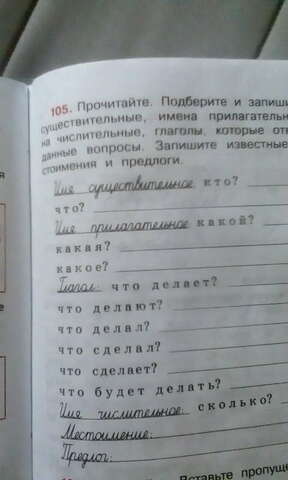 105. Прочитайте. Подберите и запиши
существительные, имена прилагательн
на числительные, глаголы, которые отв
данные вопросы. Запишите известные
стоимения и предлоги.
Имя существительное кто?
что?
Имя прилагательное какой?
какая?
какое?
Глагол: что делает?
что делают?
что делал?
что сделал?
что сделает?
что будет делать?
Имя числительное: сколько?
Местоимение:
Предлог:
Вставьте пропуще